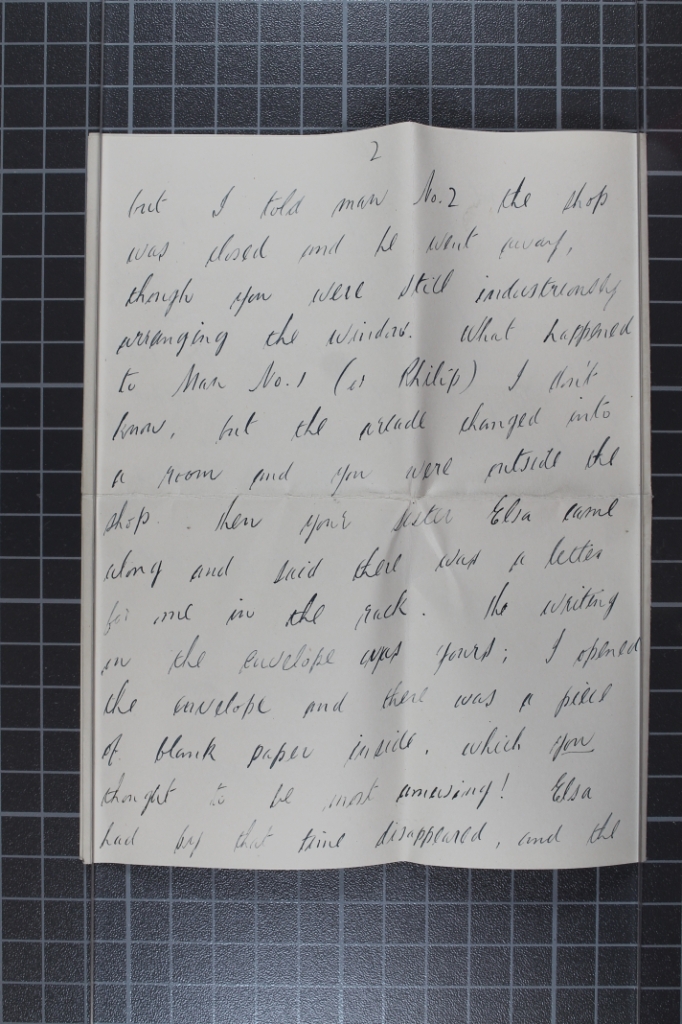 2
but I told man No.2 the shop
was closed and he went away,
though you were still industriously
arranging the window. What happened
to Man No.1 (is Philip) I don't
know, but the arcade changed into
a room and you were outside the
shop. Then your sister Elsa came
along and said there was a letter
for me in the rack. The writing
on the envelope was yours; I opened
the envelope and there was a piece
of blank paper inside, which you
thought to be most amusing! Elsa
had by that time disappeared, and the